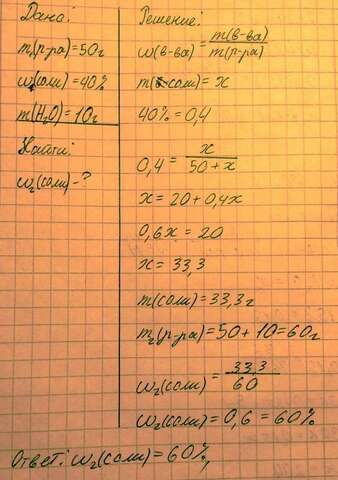 Дано:
m₁(р-ра)=50г
w₁(соли)=40%
m(H₂O)=10г
Найти:
w₂(соли)-?
Решение:
w(в-ва)=m(в-ва)/m(р-ра)
m(соли)=x
40%=0,4
0,4=x/50+x
x=20+0,4x
0,6x=20
x=33,3
m(соли)=33,3г
m₂(р-ра)=50+10=60г
w₂(соли)=33,3/60
w₂(соли)=0,6=60%
Ответ: w₂(соли)=60%